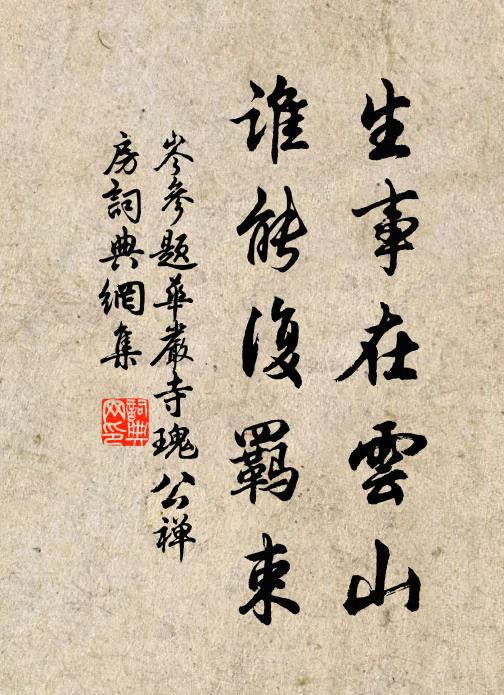 生事在雲山
誰能復羈束
岑參題華嚴寺瑰公禅
房詞典網集
詞典
网印